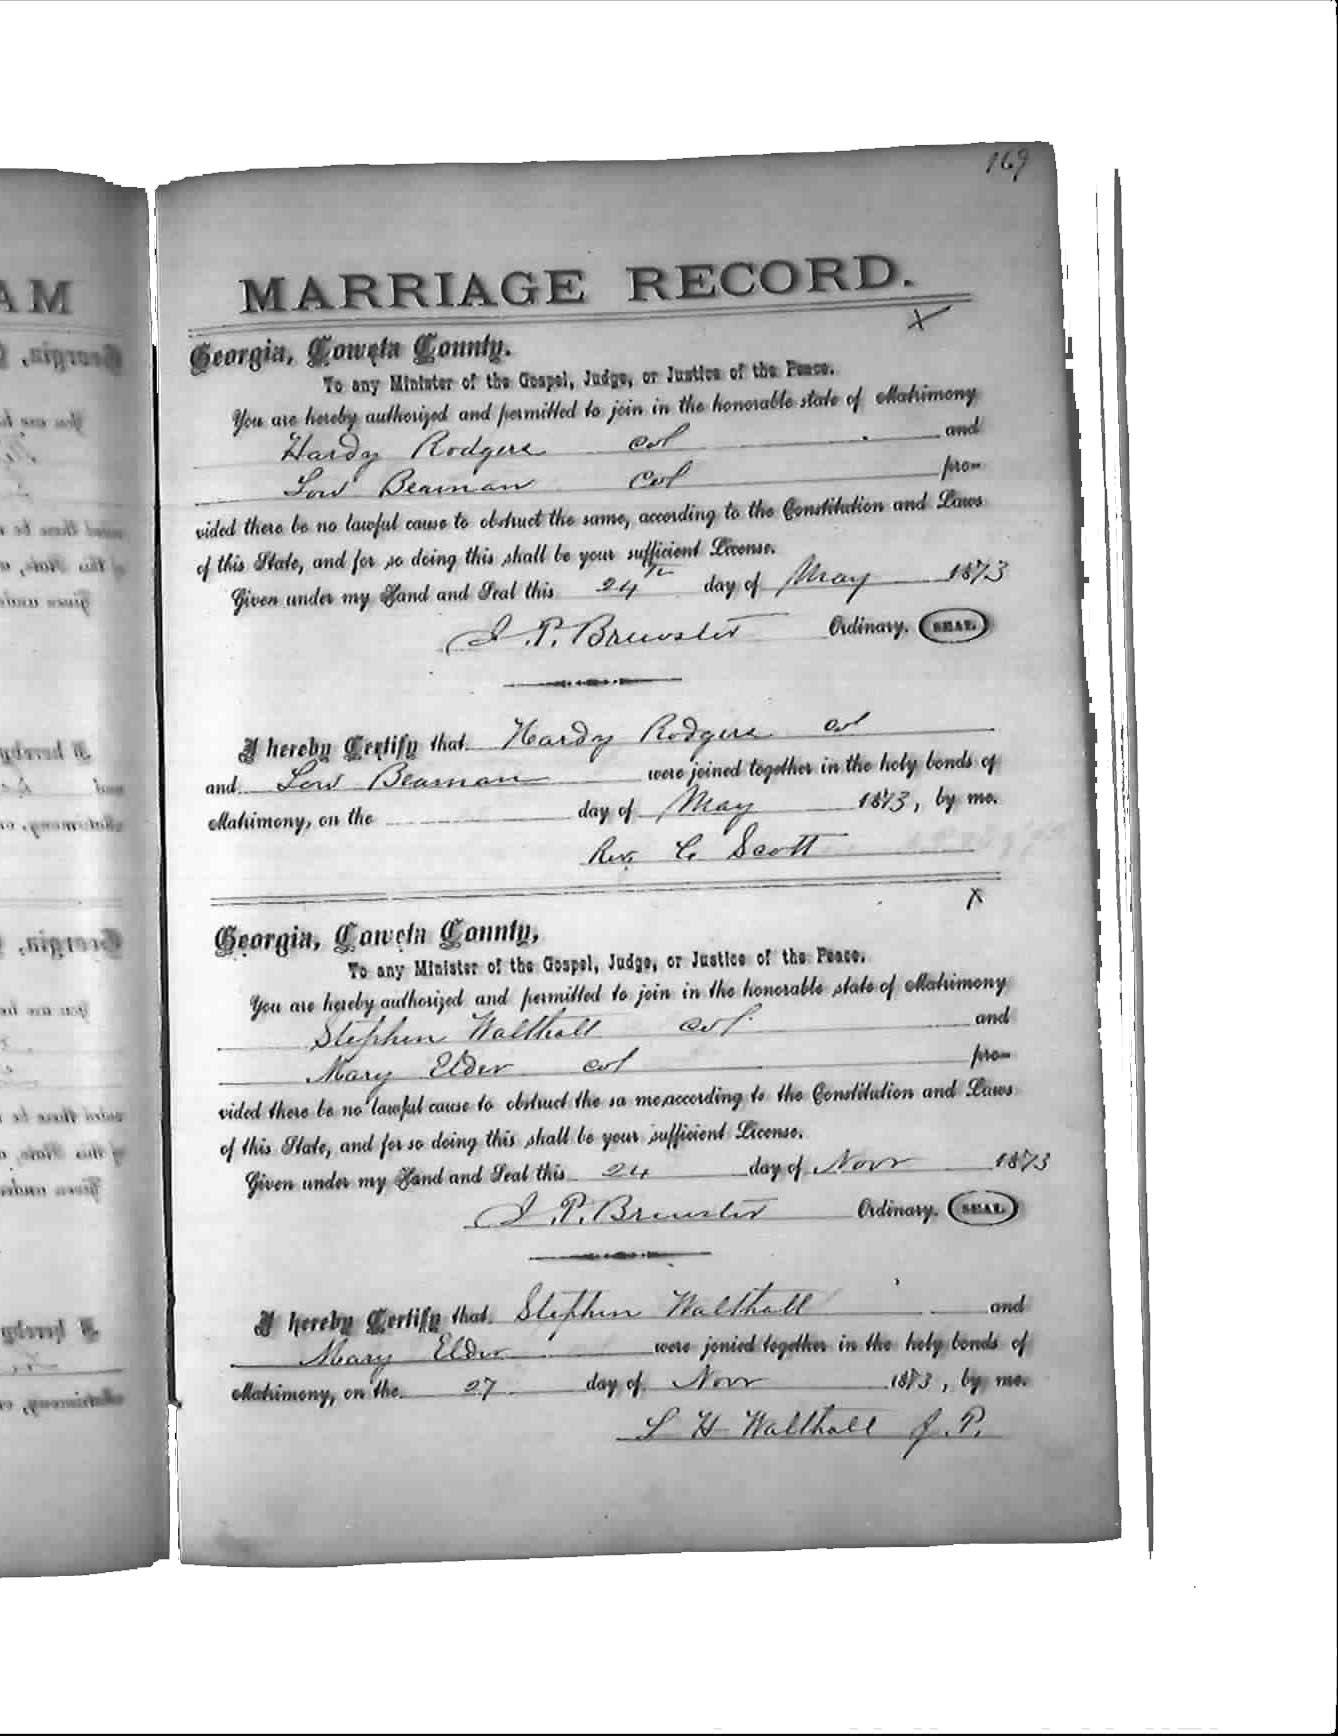 169
MARRIAGE RECORD.
X
Georgia, Coweta County.
To any Minister of the Gospel, Judge, or Justice of the Peace.
You are hereby authorized and permitted to join in the honorable state of Matrimony
Hardy Rodgers col and
Low Beaman col pro-
vided there be no lawful cause to obstruct the same, according to the Constitution and Laws
of this State, and for so doing this shall be your sufficient License.
Given under my Hand and Seal this 24th day of May 1873
J. P. Brewster Ordinary. SEAL
I hereby Certify that Hardy Rodgers col
and Low Beaman were joined together in the holy bonds of
Matrimony, on the day of May 1873, by me.
Rev. C. Scott
X
Georgia, Coweta County,
To any Minister of the Gospel, Judge, or Justice of the Peace.
You are hereby authorized and permitted to join in the honorable state of Matrimony
Stephen Walthall col. and
Mary Elder col pro-
vided there be no lawful cause to obstruct the sa me, according to the Constitution and Laws
of this State, and for so doing this shall be your sufficient License.
Given under my Hand and Seal this 24 day of Novr 1873
J. P. Brewster Ordinary. SEAL
I hereby Certify that Stephen Walthall and
Mary Elder were jonied together in the holy bonds of
Matrimony, on the 27 day of Novr 1873, by me.
L H Walthall J. P.